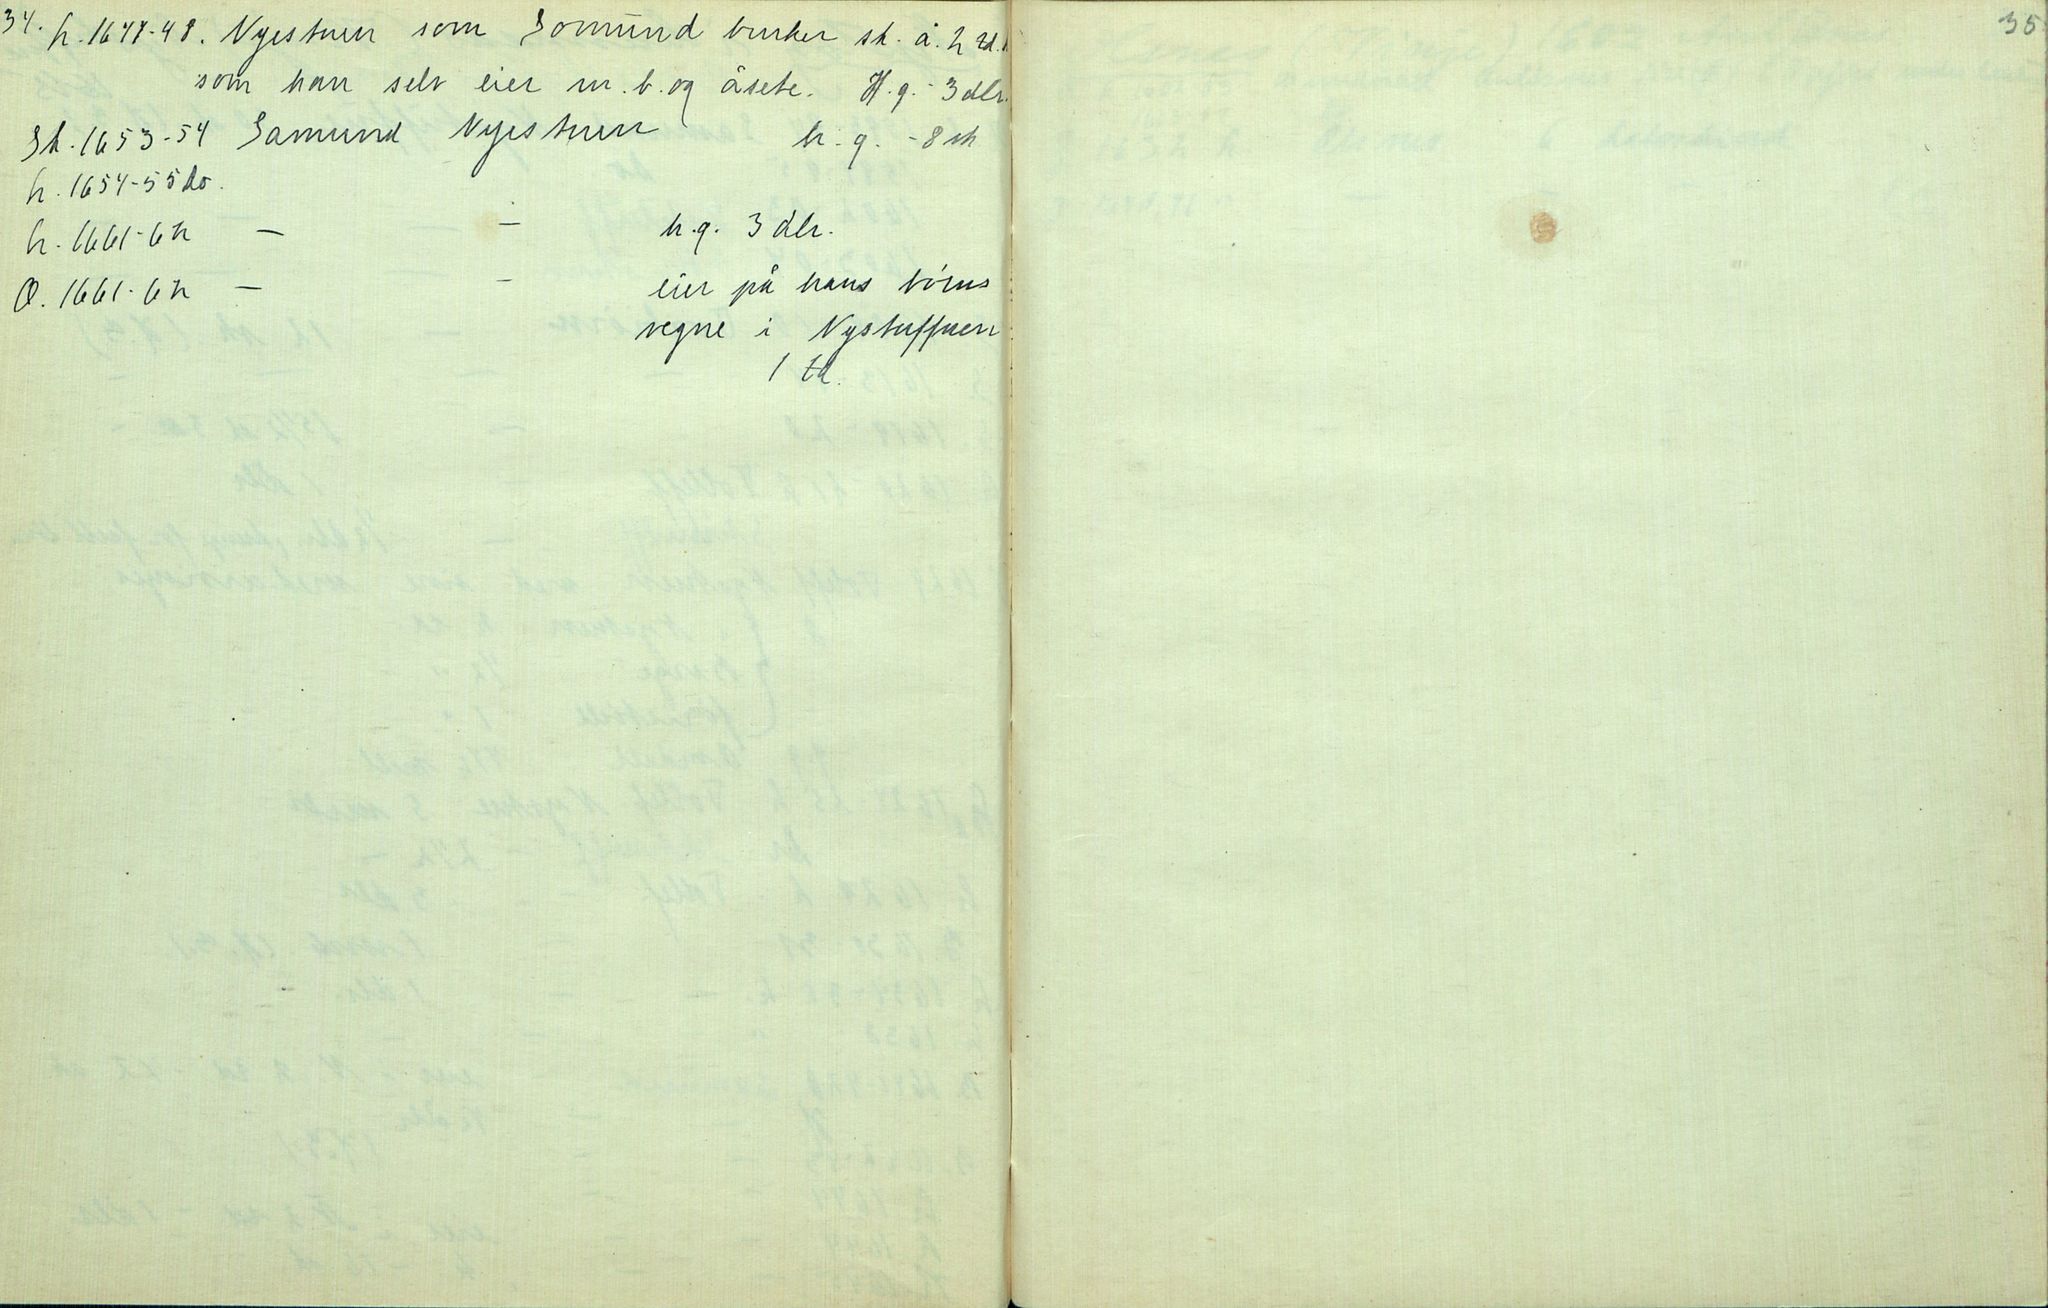 34. h. 1647-48. Nyestuen som Somund bruker sk. å. 2 td.
som han selv eier m. b. og åsete. H. g. - 3 dlr.
Sk. 1653-54 Samund Nyestuen h. g. - 8 sk
h. 1654-55 do.
h. 1661-62 — — h.g. 3 dlr.
O. 1661-62 — — eier på hans börns
vegne i Nystuffuen
1 td.
35